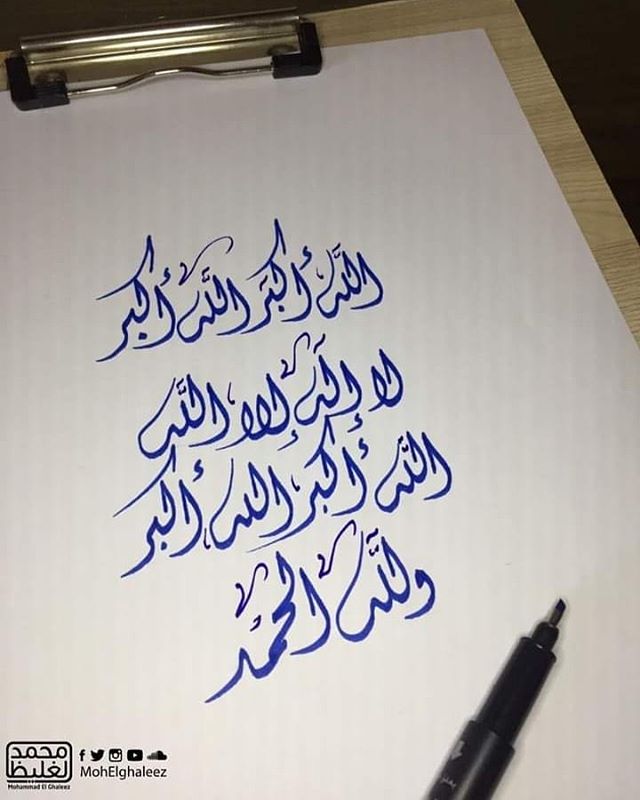 الله أكبر الله أكبر
لا إله إلا الله
الله أكبر الله أكبر
ولله الحمد
محمد
الغليظ
Mohammad El Ghaleez
MohElghaleez